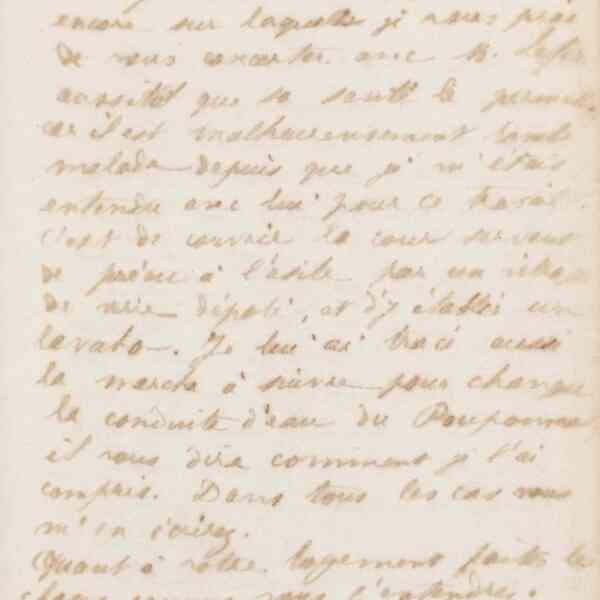 encore sur laquelle je vous prie
de vous concerter avec M.
aussitôt que sa santé le permettra
car il est malheureusement tombé
malade depuis que je m'étais
entendu avec lui pour ce travail.
C'est de couvrir la cour servant
de préau à l'asile par un
de verre dépoli, et d'y établir un
lavabo. Je lui ai tracé aussi
la marche à suivre pour changer
la conduite d'eau du Pouponnat
il vous dira comment je l'ai
compris. Dans tous les cas vous
m'en écrirez.
Quant à votre logement faites le
comme vous l'entendrez.